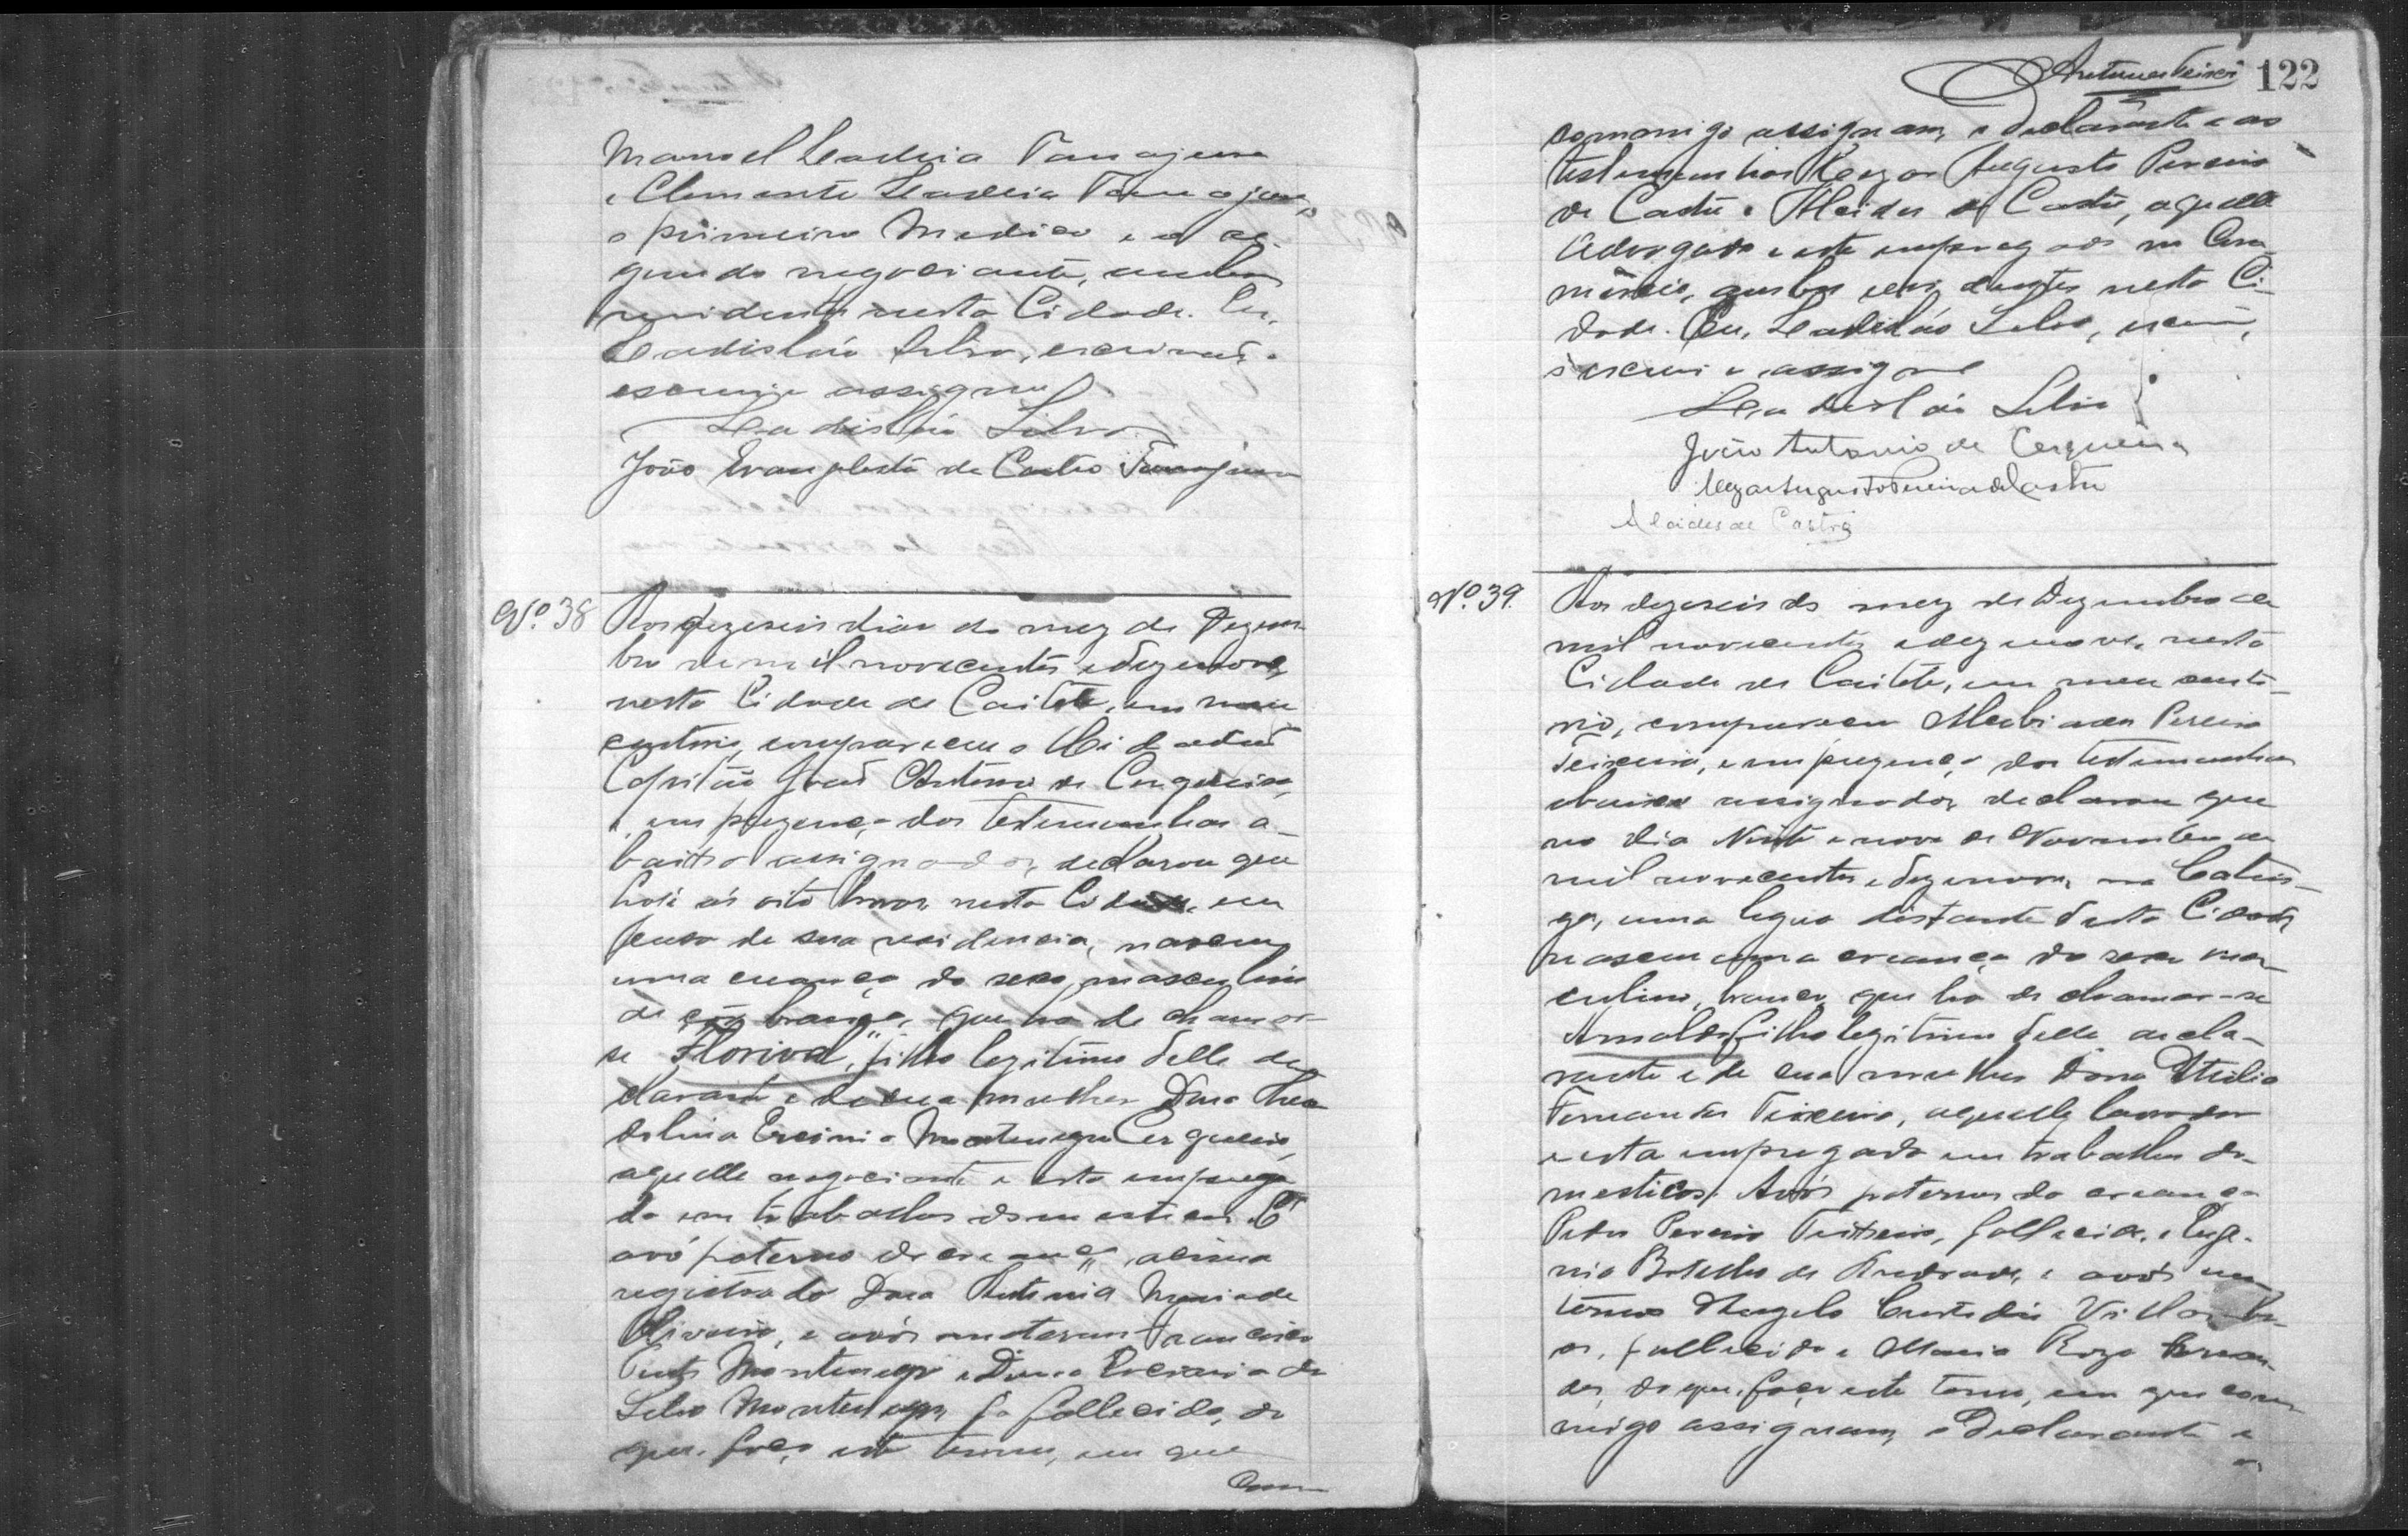 Manoel Ladeia Tanajura
e Clemente Ladeia Tanajura,
o primeiro Medico e o se-
gundo negociante, ambos
residentes nesta Cidade. Eu,
Ladisláo Silva, escrivão
escrevi e assigno
Ladisláo Silva
João Evangelista de Castro Tanajura
Nº 38
Aos dezeseis dias do mez de Dezem-
bro de mil novecentos e dezenove,
nesta Cidade de Caiteté, em meu
cartorio, compareceu o Cidadão
Capitão João Antonio de Cerqueira,
e, em prezença das testemunhas a-
baixo assignadas, declarou que
hoje ás oito horas nesta Cidade, em
casa de sua residencia, nasceu
uma creança do sexo masculino
de côr branca, que ha de chamar-
se "Florival", filho legitimo delle de-
clarante e de sua mulher Dona Theo
dolina Montenegro Cerqueira,
aquelle negociante e esta emprega
da em trabalhos domesticos. É
avó paterna da creança acima
registrada Dona Antonia Maria de
Oliveira, e avós maternos Francisco
Montenegro e Dona da
Silva Montenegro, ja fallecida, do
que, faço este termo, em que
Com
122
commigo assignam, o declarante e as
testemunhas Cezar Augusto Pereira
de Castro e Alcides de Castro, aquelle
Advogado e este empregado no Com
mercio, ambos residentes nesta Ci-
dade. Eu, Ladisláo Silva, escrivão,
escrevi e assigno
Ladisláo Silva
João Antonio de Cerqueira
Cezar Augusto Pereira de Castro
Alcides de Castro
Nº 39.
Aos dezeseis do mez de Dezembro de
mil novecentos e dezenove, nesta
Cidade de Caiteté, em meu carto-
rio, compareceu Pereira
Teixeira, e em prezença das testemunhas
abaixo assignadas, declarou que
no dia vinte e nove de Novembro de
mil novecentos e dezenove, na Catin-
ga, uma legua distante desta Cidade
nasceu uma creança do sexo mas-
culino, branca, que ha de chamar-se
Arnaldo, filho legitimo delle decla-
rante e de sua mulher Dona Otilia
Fernandes Teixeira, aquelle lavrador
e esta empregada em trabalhos do-
mesticos. Avós paternos da creança
Pedro Pereira Teixeira, fallecido, e Euge-
nia Botelho de Andrade, e avós ma
ternos Angelo Custodio Villasbo-
as, fallecido e Maria Roza Fernan-
des, do que, faço este termo, em que com
migo assignam, o declarante e
as